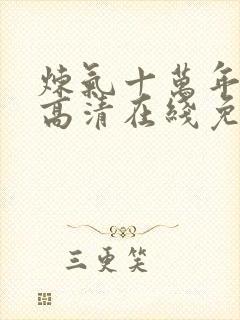 煉氣十萬年
高清在綫免
三更笑